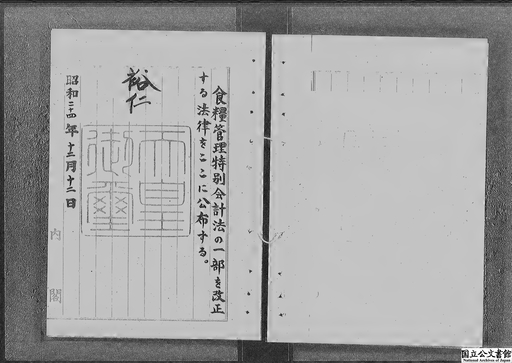 食糧管理特別会計法の一部を改正
する法律をここに公布する。
裕仁
天皇
御璽
昭和二十四年十二月十二日
内閣
国立公文書館
National Archives of Japan